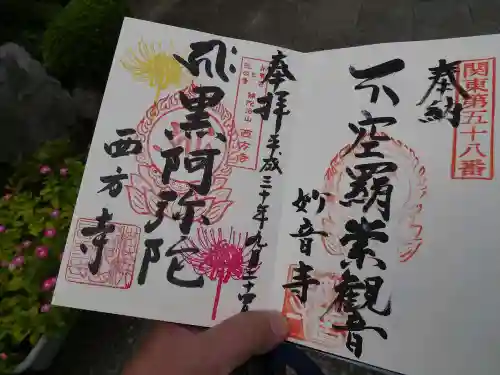 関東第五十八番
奉納
不空羂索観音
妙音寺
奉拝
平成三十年九月二十四日
西方寺
黒阿弥陀
西方寺